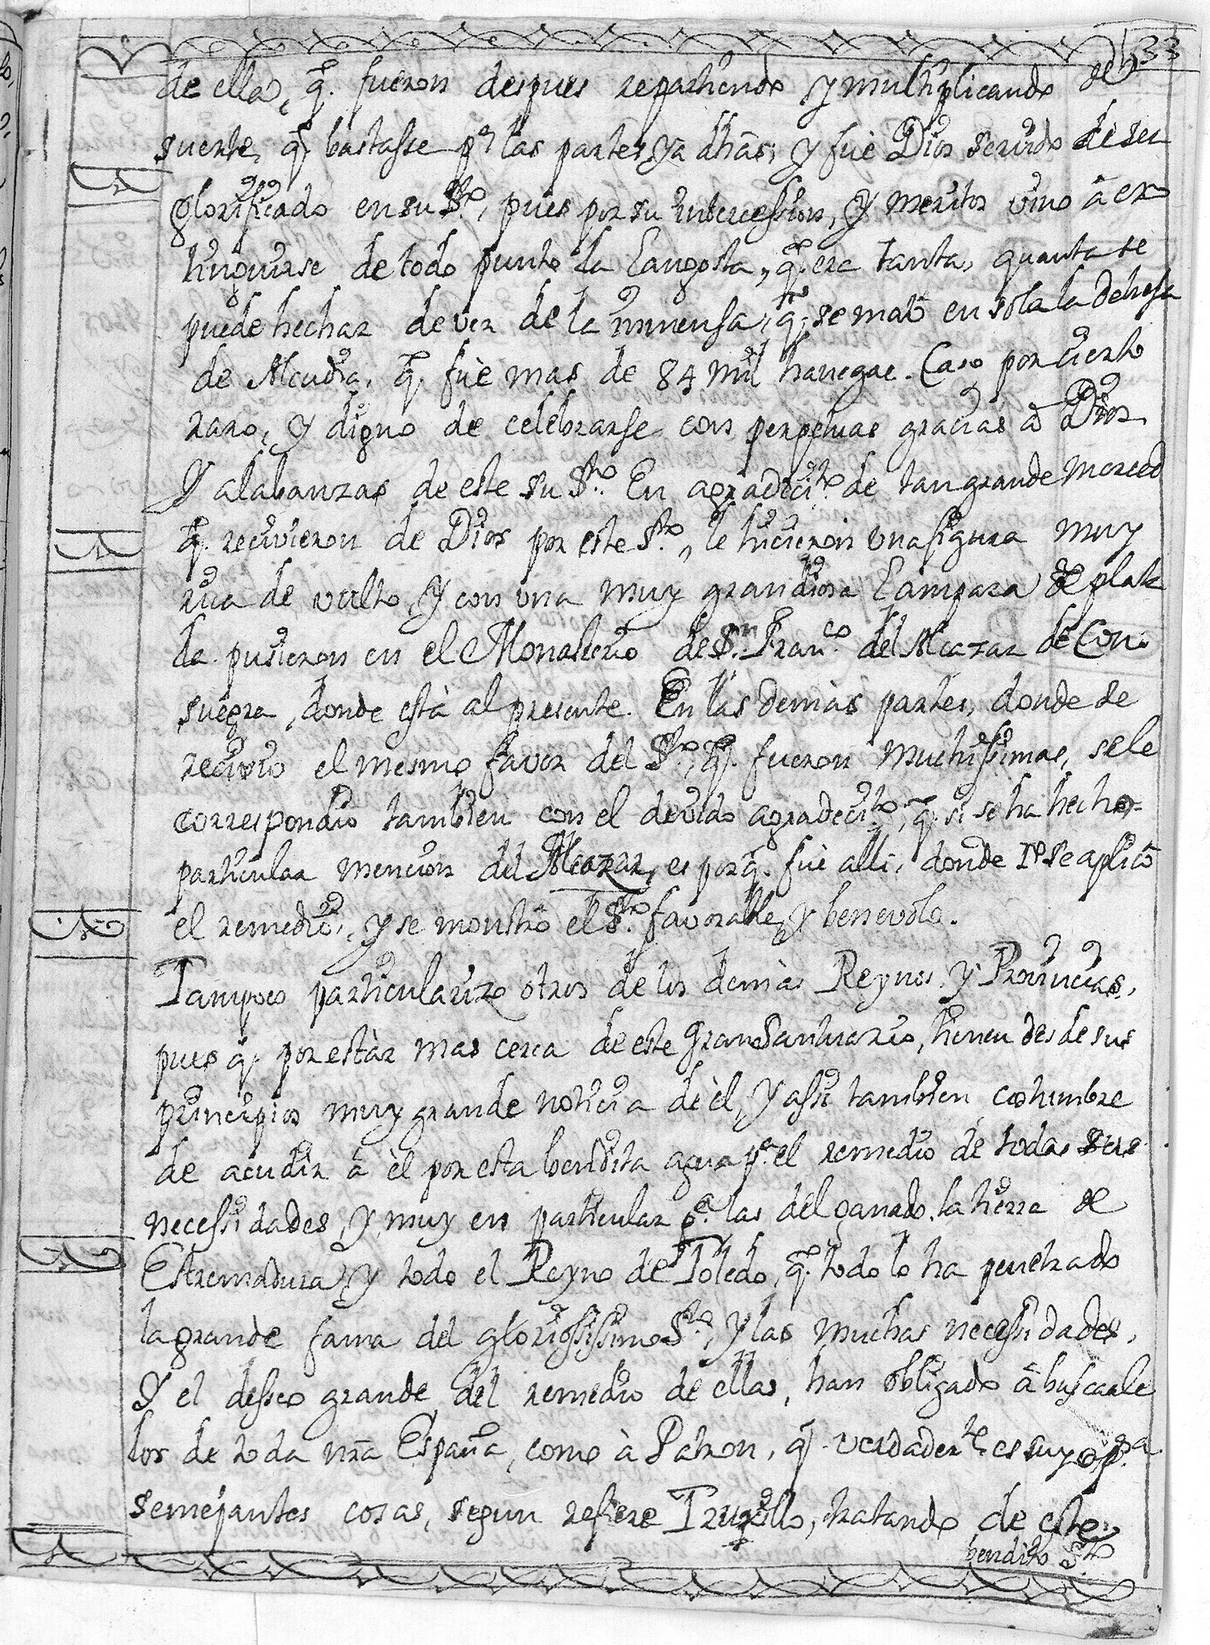 33
de ella, q̃. fueron despues repartiendo y multiplicando de
suerte, q̃ bastasse pª las partes ya dhãs; y fue Dios servido de ser
glorificado en su Stº, pues por su intercession, y meritos vino â ex
tinguirse de todo punto la Langosta, q̃. era tanta, quanta se
puede hechar de ver de la inmensa, q̃. se matò en sola la dehesa
de Alcudia, q̃. fuè mas de 84 mil hanegas. Caso por cierto
raro, y digno de celebrarse con perpetuas gracias â Dios
Y alabanzas de este su Stº. En agradecitº. de tan grande merced
q̃. recivieron de Dios por este Stº., le hicieron una figura muy
rica de vulto, y con una muy grandiosa Lampara de plata
la pusieron en el Monasterio de Sn. Franco. del Alcazar de Con-
suegra, donde està al presente. En las demàs partes, donde se
reciviò el mesmo favor del Stº., q̃. fueron muchissimas, se le
correspondiò tambien con el devido agradecitº., q̃. si se ha hecho=
particular mencion del Alcazar, es porq̃. fuè alli, donde 1º se aplicò
el remedio, y se monstrò el Stº. favorable, y benevolo.
Tampoco particularizo otros de los demàs Reynos, y Provincias,
pues q̃. por estàr mas cerca de este gran Santuario, tienen desde sus
principios muy grande noticia de èl, y assi tambien costumbre
de acudir â èl por esta bendita agua pª. el remedio de todas sus
necessidades, y muy en particular pª. las del ganado, la tierra de
Estremadura, y todo el Reyno de Toledo, q̃. todo lo ha penetrado
la grande fama del gloriosissimo Stº., y las muchas necessidades,
Y el desseo grande del remedio de ellas, han obligado â buscarle
los de toda nrã España, como à Patron, q̃. verdaderte. es suyo pª.
semejantes cosas, segun refiere Truxillo, tratando de este
bendito Stº.